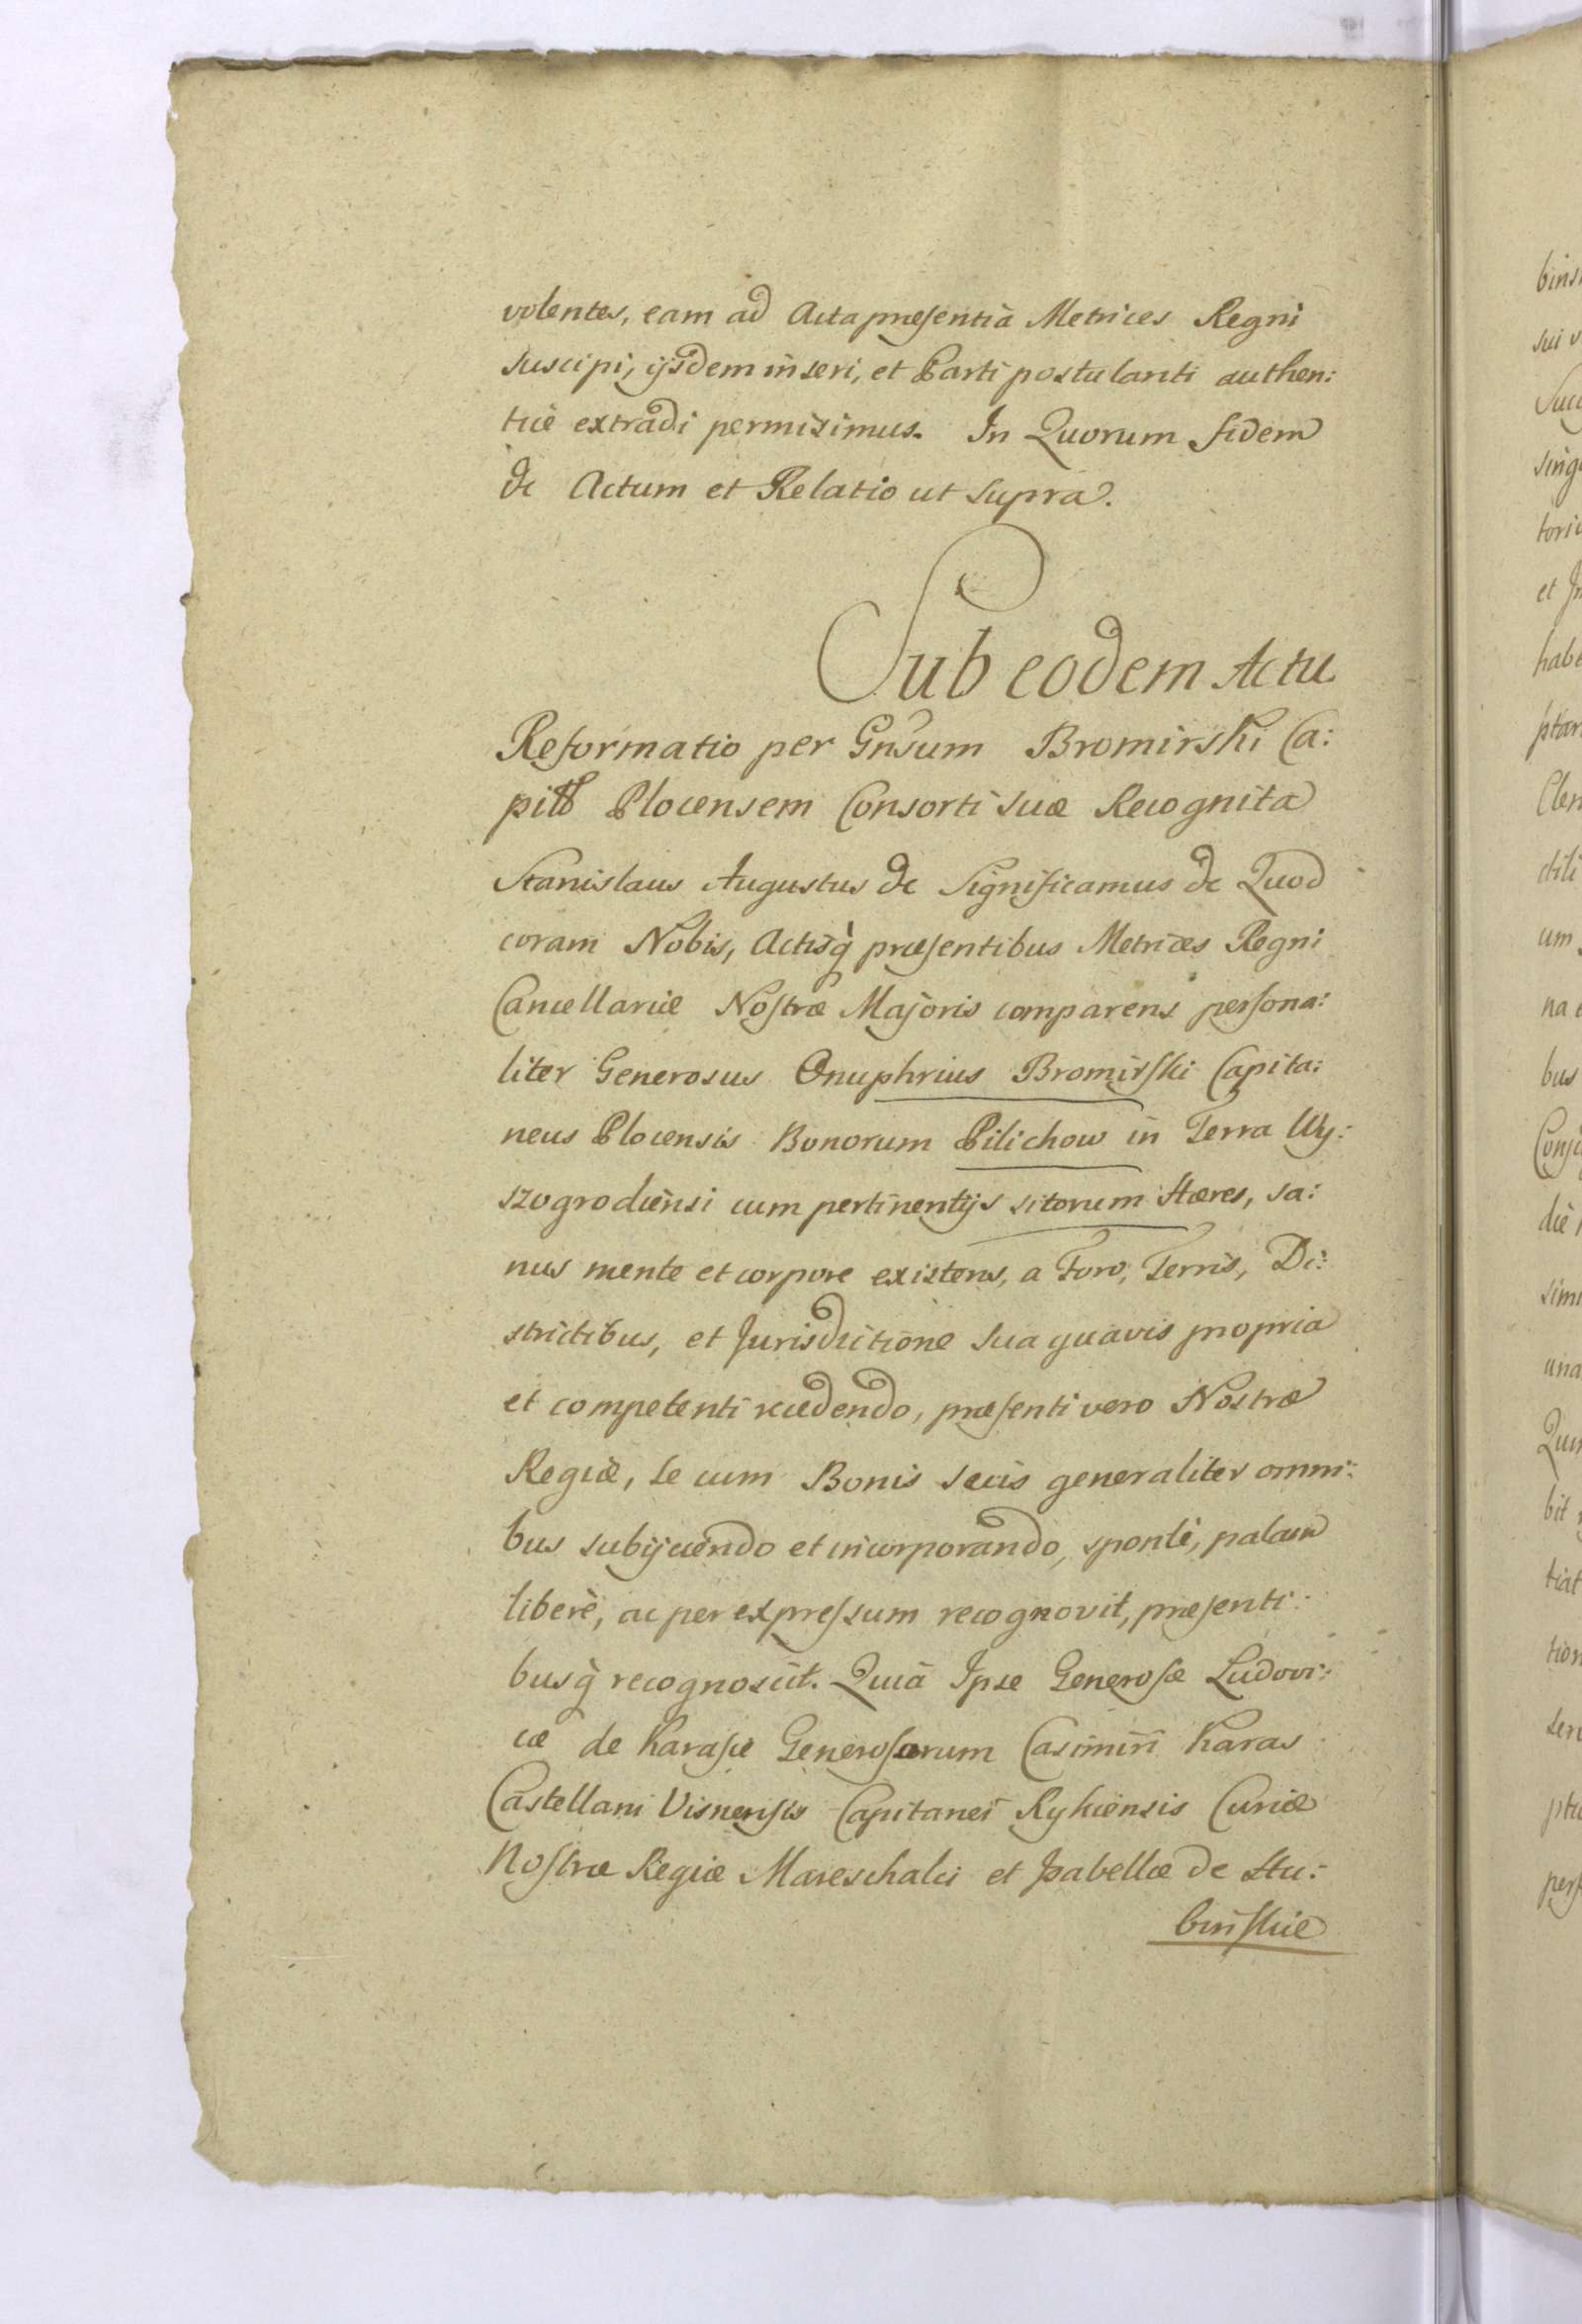 volentes, eam ad Acta præsentia Metrices Regni
suscipi, ijsdem inseri, et Parti postulanti authen:
tice extradi permisimus. In Quorum fidem
&c Actum et Relatio ut supra.
Sub eodem Actu
Reformatio per Gnsum Bromirski Ca:
pitt Plocensem Consorti suæ Recognita
Stanislaus Augustus &c Significamus &c Quod
coram Nobis, Actisq̀ præsentibus Metrices Regni
Cancellariæ Nostræ Majoris comparens persona:
liter Generosus Onuphrius Bromirski Capita:
neus Plocensis Bonorum Pilichow in Terra Wy:
szogrodiensi cum pertinentijs sitorum Hæres, sa:
nus mente et corpore existens, a Foro, Terris, Di:
strictibus, et Jurisdictione sua quavis propria
et competenti recedendo, præsenti vero Nostræ
Regiæ, se cum Bonis suis generaliter omni:
bus subijciendo et incorporando, sponte, palam
liberè, ac per expressum recognovit, præsenti:
busq̀ recognoscit. Quià Ipse Generosæ Ludovi:
cæ de Karasie Generosorum Casimiri Karas
Castellani Visnensis Capitanei Rykiensis Curiæ
Nostræ Regiæ Mareschalci et Isabellæ de Stu:
binskie
bins
sui v
sing
et
habe
ptar
um
na
bus
die
sim
una
bit
tiat
tion
pers